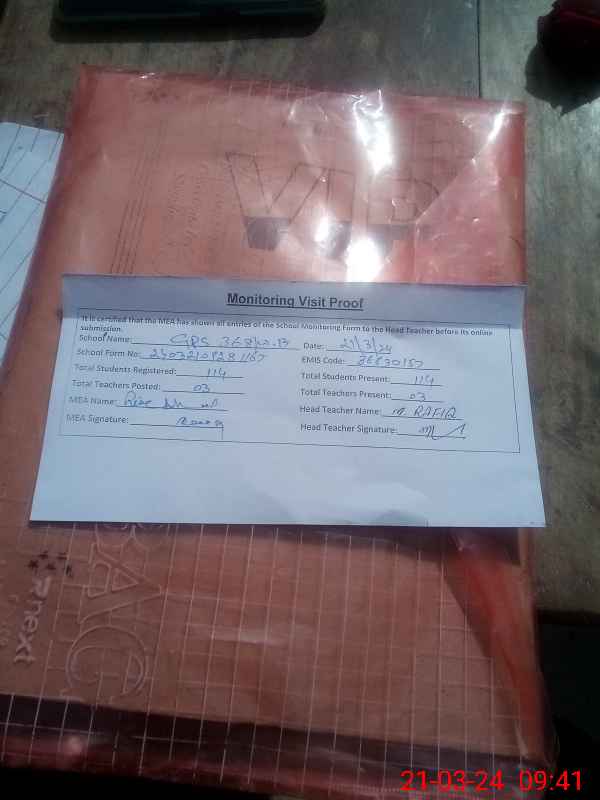 VIP
Monitoring Visit Proof
It is certified that the MEA has shown all entries of the School Monitoring Form to the Head Teacher before its online
submission.
School Name: GPS 368/W.B Date: 21/3/24
School Form No: EMIS Code:
Total Students Registered: 114 Total Students Present: 114
Total Teachers Posted: 03 Total Teachers Present: 03
MEA Name: Head Teacher Name: M RAFIQ
MEA Signature: Head Teacher Signature:
BAG
next
21-03-24 09:41